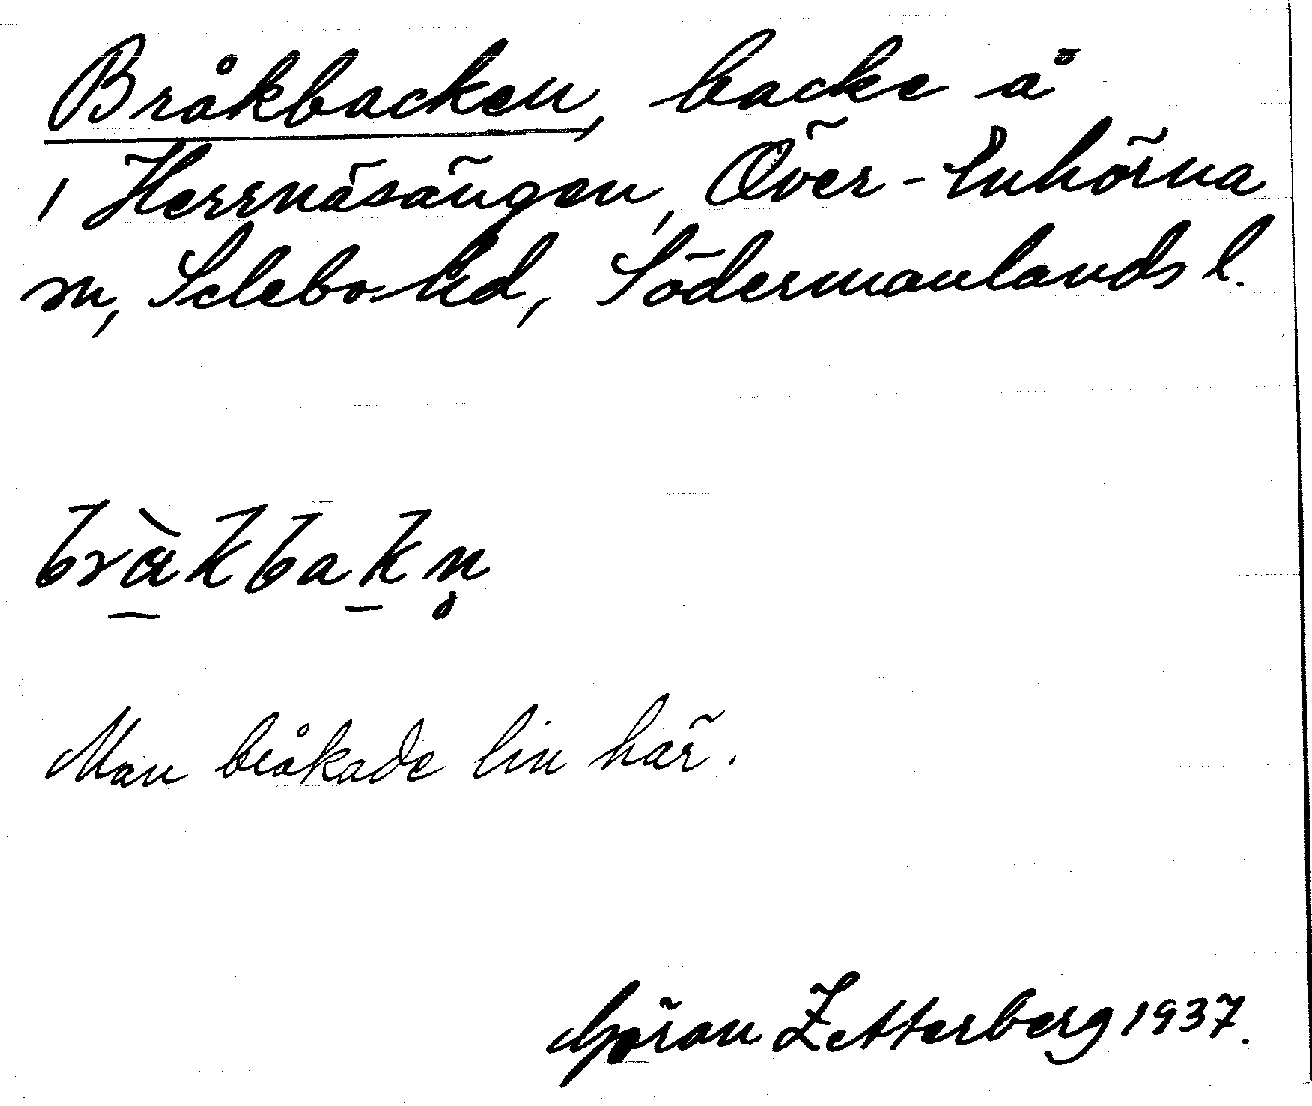 Bråkbacken, backe å
i Herrnäsängen, Över-Enhörna
sn, Selebo hd, Södermanlands l.
bràkbakn̥
Man bråkade lin här.
Göran Zetterberg 1937.